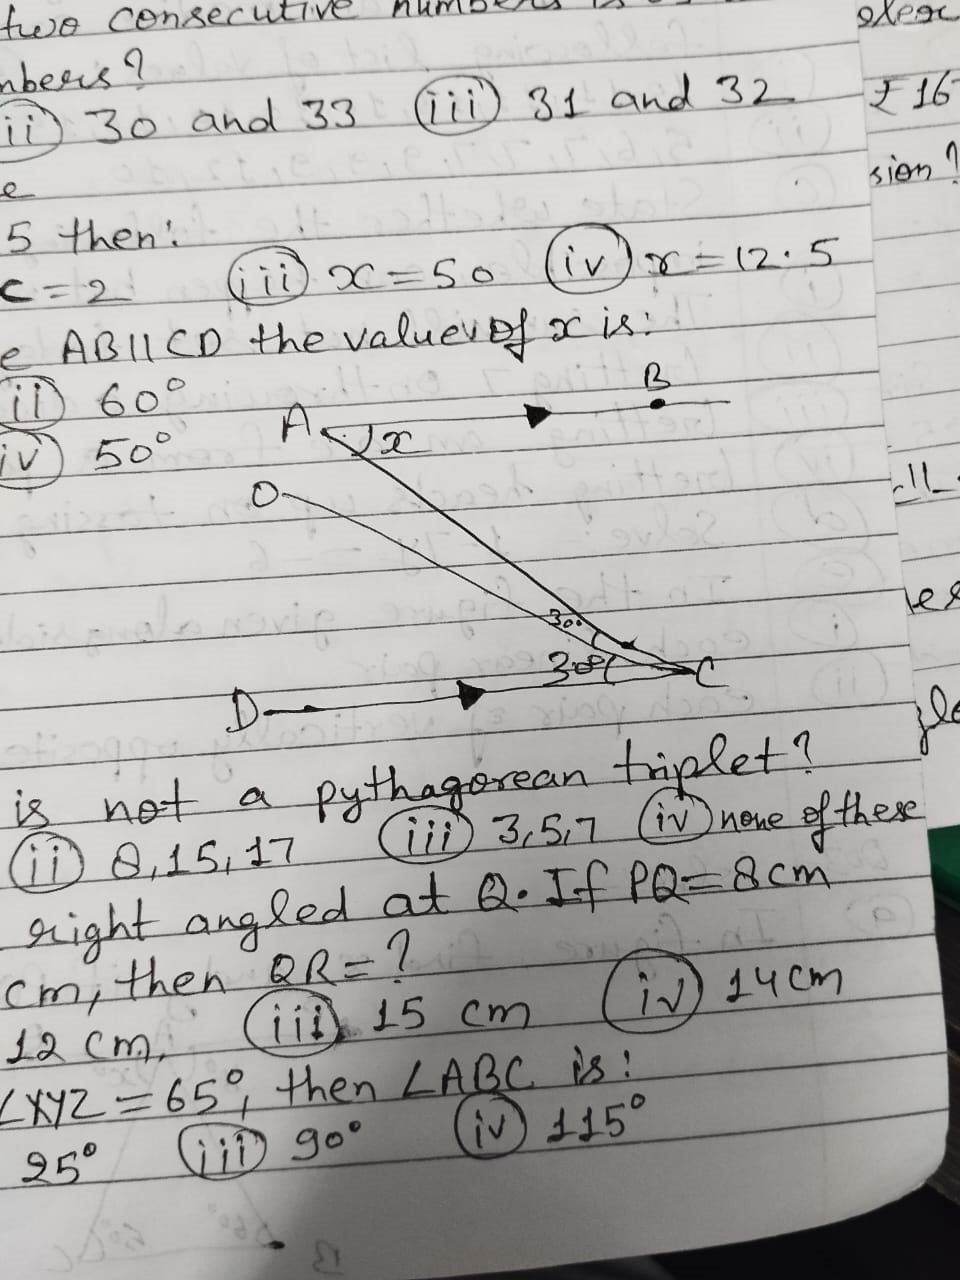 two consecutive numbers is
nbers?
ii) 30 and 33 (iii) 31 and 32
₹16
sion?
e
5 then:
c = 2 (iii) x = 50 (iv) x = 12.5
e AB || CD the value of x is:
(ii) 60°
iv) 50°
B
A
x
O
30°
30°
C
D
is not a pythagorean triplet?
(ii) 8,15,17 (iii) 3,5,7 (iv) none of these
right angled at Q. If PQ = 8 cm
cm, then QR = ?
12 cm, (iii) 15 cm (iv) 14 cm
∠XYZ = 65°, then ∠ABC is:
25° (iii) 90° (iv) 115°